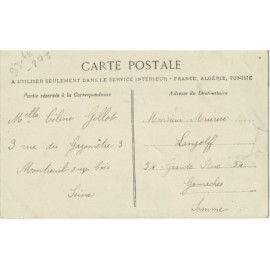 CARTE POSTALE
A UTILISER SEULEMENT DANS LE SERVICE INTÉRIEUR - FRANCE, ALGÉRIE, TUNISIE
Partie réservée à la Correspondance
Adresse du Destinataire
Melle Céline Gillot
3 rue du Gazomètre 3
Montreuil sous bois
Seine
Monsieur Maurice
Langloff
54 Grande Rue 54
Gamaches
Somme